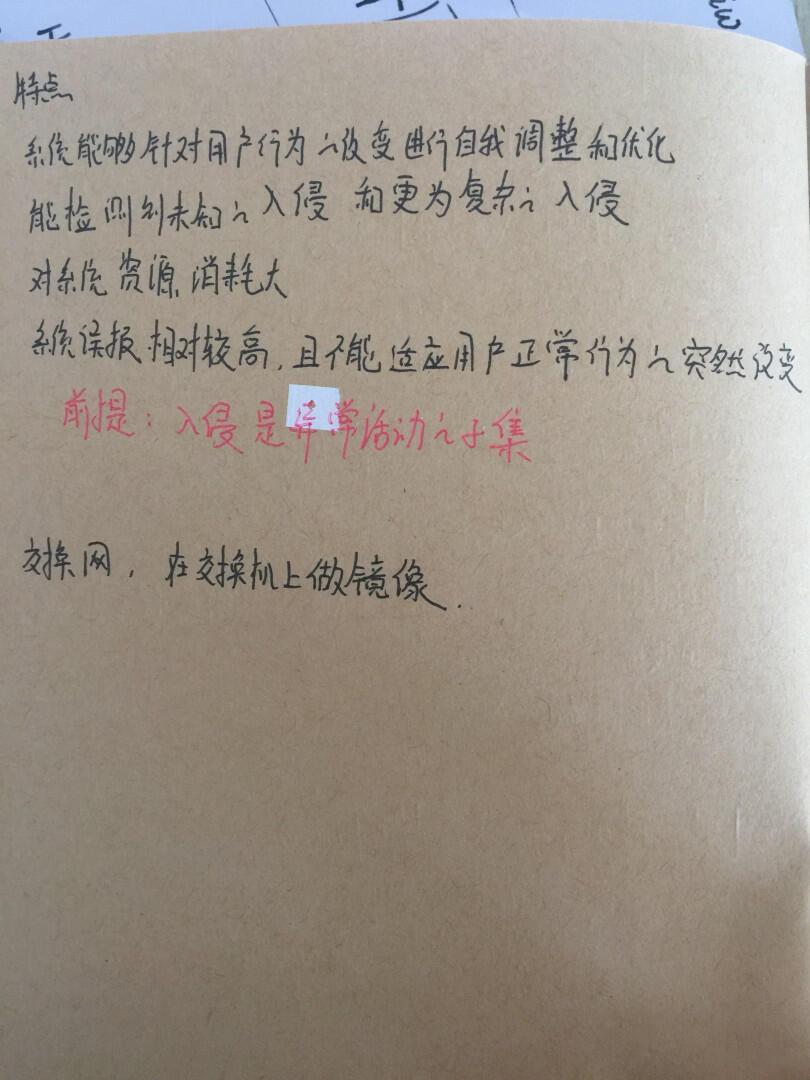 特点
系统能够针对用户行为的改变进行自我调整和优化
能检测到未知的入侵和更为复杂的入侵
对系统资源消耗大
系统误报相对较高,且不能适应用户正常行为的突然改变
前提:入侵是异常活动的子集
交换网,在交换机上做镜像.